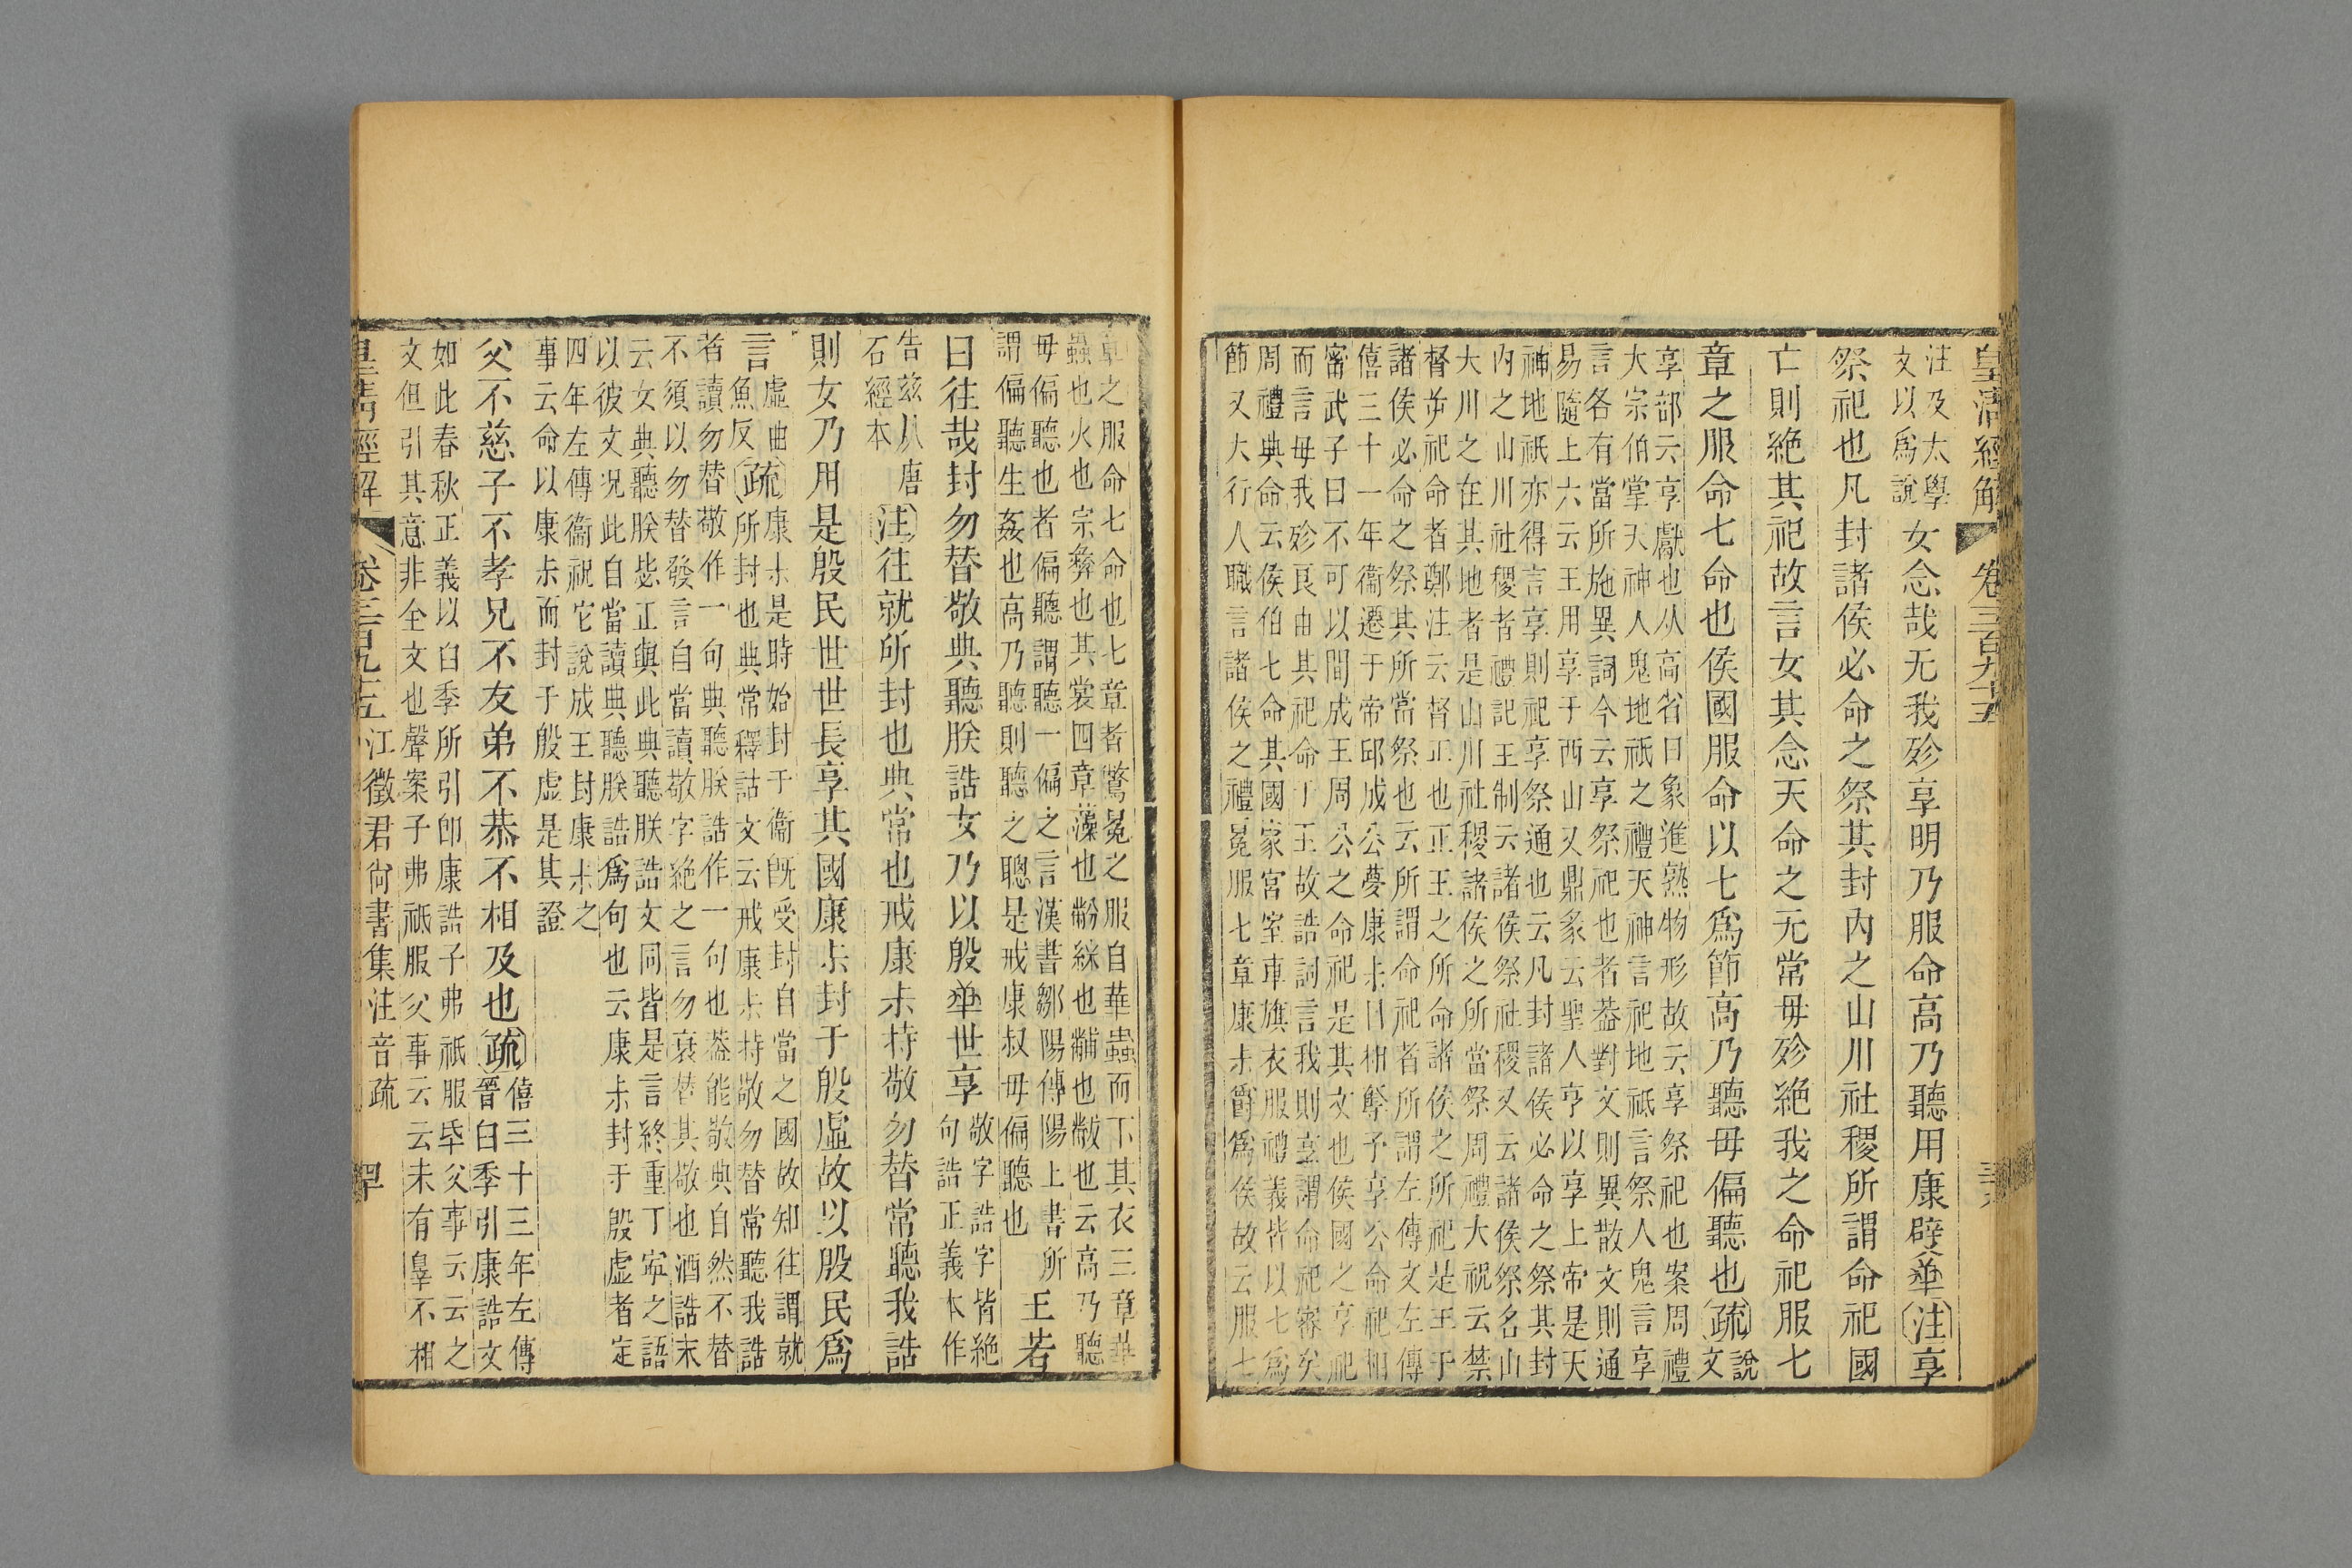 皇清經解 卷三百九十五
注及太學
文以爲說
女念哉无我殄享明乃服命高乃聽用康辥𠦪注享
祭祀也凡封諸侯必命之祭其封內之山川社稷所謂命祀國
亡則絕其祀故言女其念天命之无常毋殄絕我之命祀服七
章之服命七命也侯國服命以七爲節高乃聽毋偏聽也疏說
文
享部云享獻也从高省曰象進孰物形故云享祭祀也案周禮
大宗伯掌天神人鬼地祇之禮天神言祀地祇言祭人鬼言享
言各有當所施異詞今云享祭祀也者葢對文則異散文則通
易隨上六云王用享于西山又鼎彖云聖人亨以享上帝是天
神地祇亦得言享則祀享祭通也云凡封諸侯必命之祭其封
內之山川社稷者禮記王制云諸侯祭社稷又云諸侯祭名山
大川之在其地者是山川社稷諸侯之所當祭周禮大祝云禁
督逆祀命者鄭注云督正也正王之所命諸侯之所祀是王于
諸侯必命之祭其所當祭也云所謂命祀者所謂左傳文左傳
僖三十一年衞遷于帝邱成公夢康尗曰相奪予享公命祀相
甯武子曰不可以間成王周公之命祀是其文也侯國之享祀
而言毋我殄良由其祀命丁王故誥詞言我則意謂命祀審矣
周禮典命云侯伯七命其國家宮室車旗衣服禮義皆以七爲
節又大行人職言諸侯之禮冕服七章康尗爵爲侯故云服七
章之服命七命也七章者鷩冕之服自華蟲而下其衣三章華
蟲也火也宗彝也其裳四章藻也黺綵也黼也黻也云高乃聽
毋偏聽也者偏聽謂聽一偏之言漢書鄒陽傳陽上書所
謂偏聽生姦也高乃聽則聽之聰是戒康叔毋偏聽也
王若
曰往哉封勿替敬典聽朕誥女乃以殷𠦪世享敬字誥字皆絕
句誥正義本作
告茲从唐
石經本
注往就所封也典常也戒康尗持敬勿替常聽我誥
則女乃用是殷民世世長享其國康尗封于殷虛故以殷民爲
言虛曲
魚反
疏康尗是時始封于衞旣受封自當之國故知往謂就
所封也典常釋詁文云戒康尗持敬勿替常聽我誥
者讀勿替敬作一句典聽朕誥作一句也葢能敬典自然不替
不須以勿替發言自當讀敬字絕之言勿衰替其敬也酒誥末
云女典聽朕毖正與此典聽朕誥文同皆是言終重丁寍之語
以彼文况此自當讀典聽朕誥爲句也云康尗封于殷虛者定
四年左傳衞祝它說成王封康尗之
事云命以康尗而封于殷虛是其證
父不慈子不孝兄不友弟不恭不相及也疏僖三十三年左傳
晉臼季引康誥文
如此春秋正義以臼季所引卽康誥子弗祇服氒父事云云之
文但引其意非全文也聲案子弗祇服父事云云未有辠不相
皇清經解 卷三百九十五 江徵君尙書集注音疏